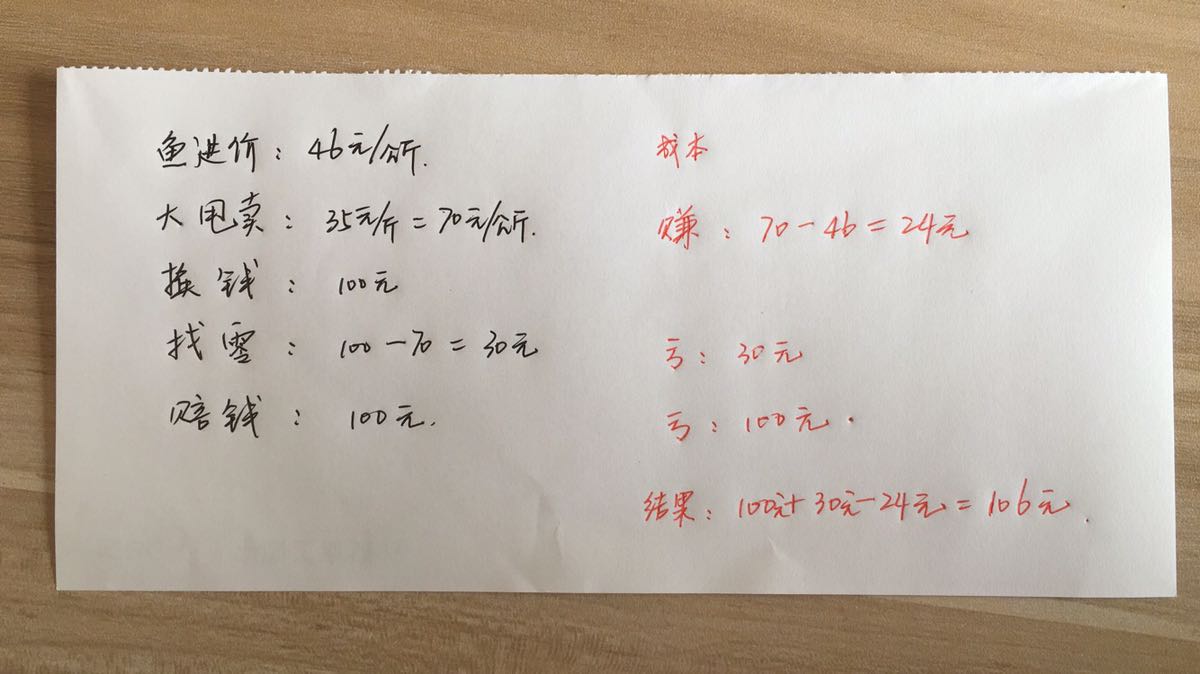 鱼进价：46元/公斤.
成本
大甩卖：35元/斤=70元/公斤.
赚：70-46=24元
换钱：100元
找零：100-70=30元
亏：30元
赔钱：100元.
亏：100元.
结果：100元+30元-24元=106元.